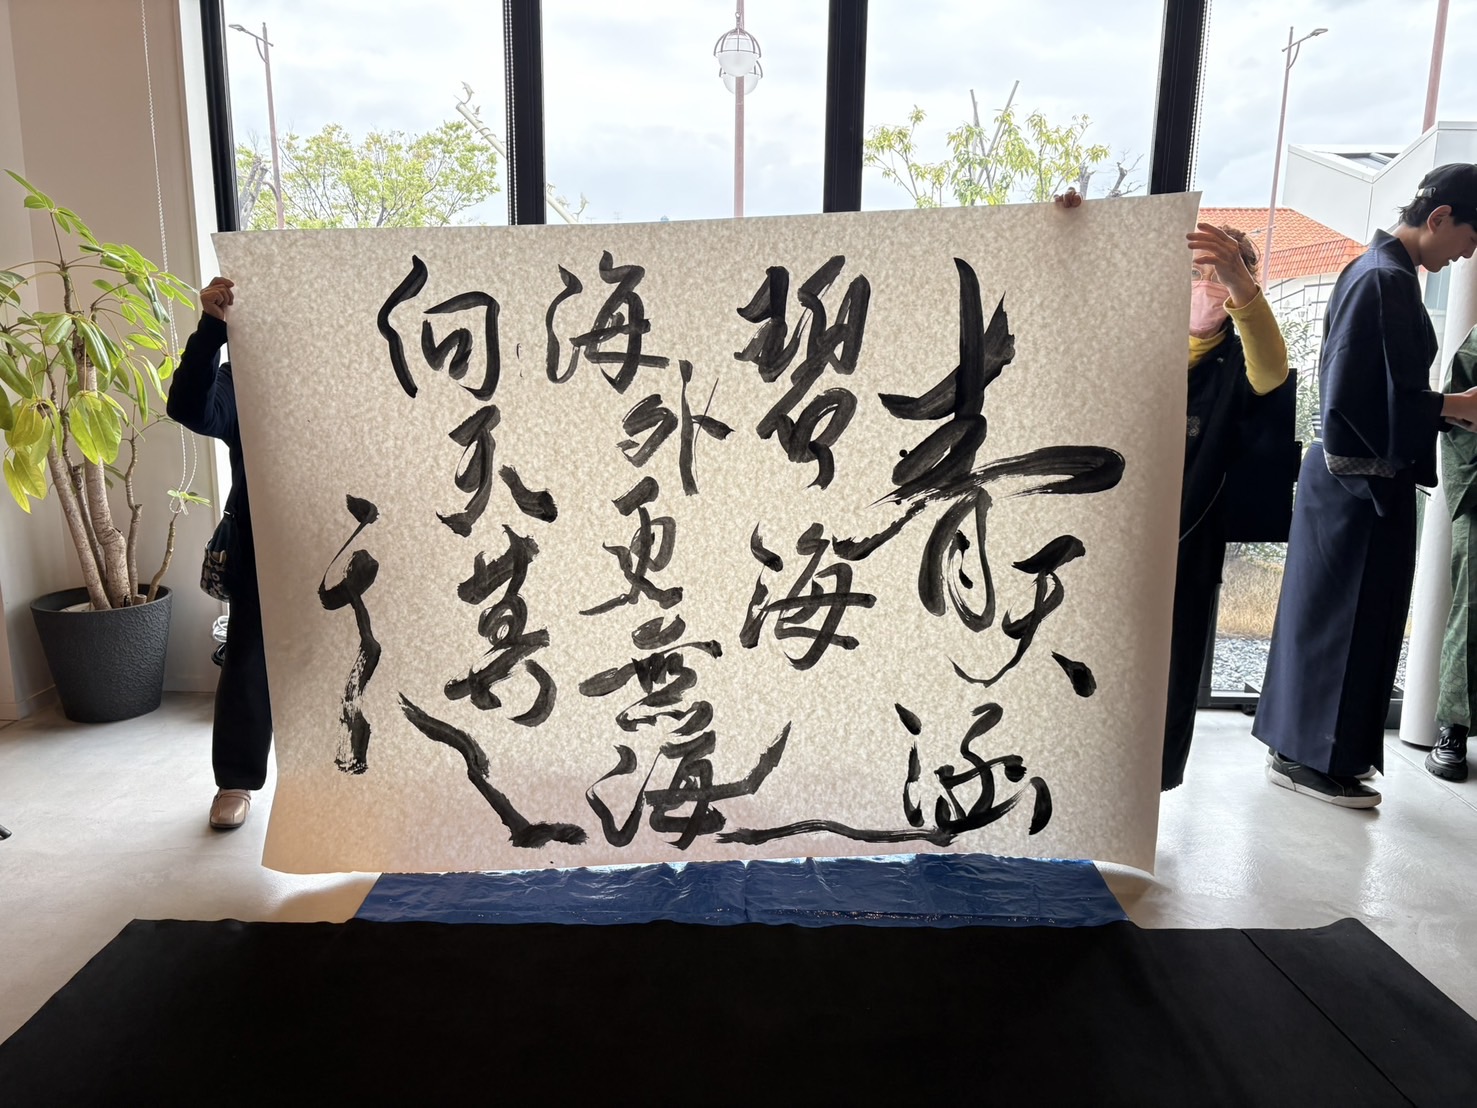 青天涵
碧海
海外更無海
何天